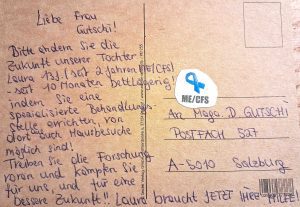 Liebe Frau
Gutschi!
Bitte ändern Sie die
Zukunft unserer Tochter
Laura 13J (seit 2 Jahren ME/CFS)
- seit 10 Monaten bettlägerig!
indem Sie eine
spezialisierte Behandlungs-
stelle errichten, von
dort auch Hausbesuche
möglich sind!
Treiben Sie die Forschung
voran und kämpfen Sie
für uns, und für eine
bessere Zukunft!! Laura braucht JETZT IHRE HILFE!
ME/CFS
An Maga. D. GUTSCHI
POSTFACH 527
A-5010 Salzburg